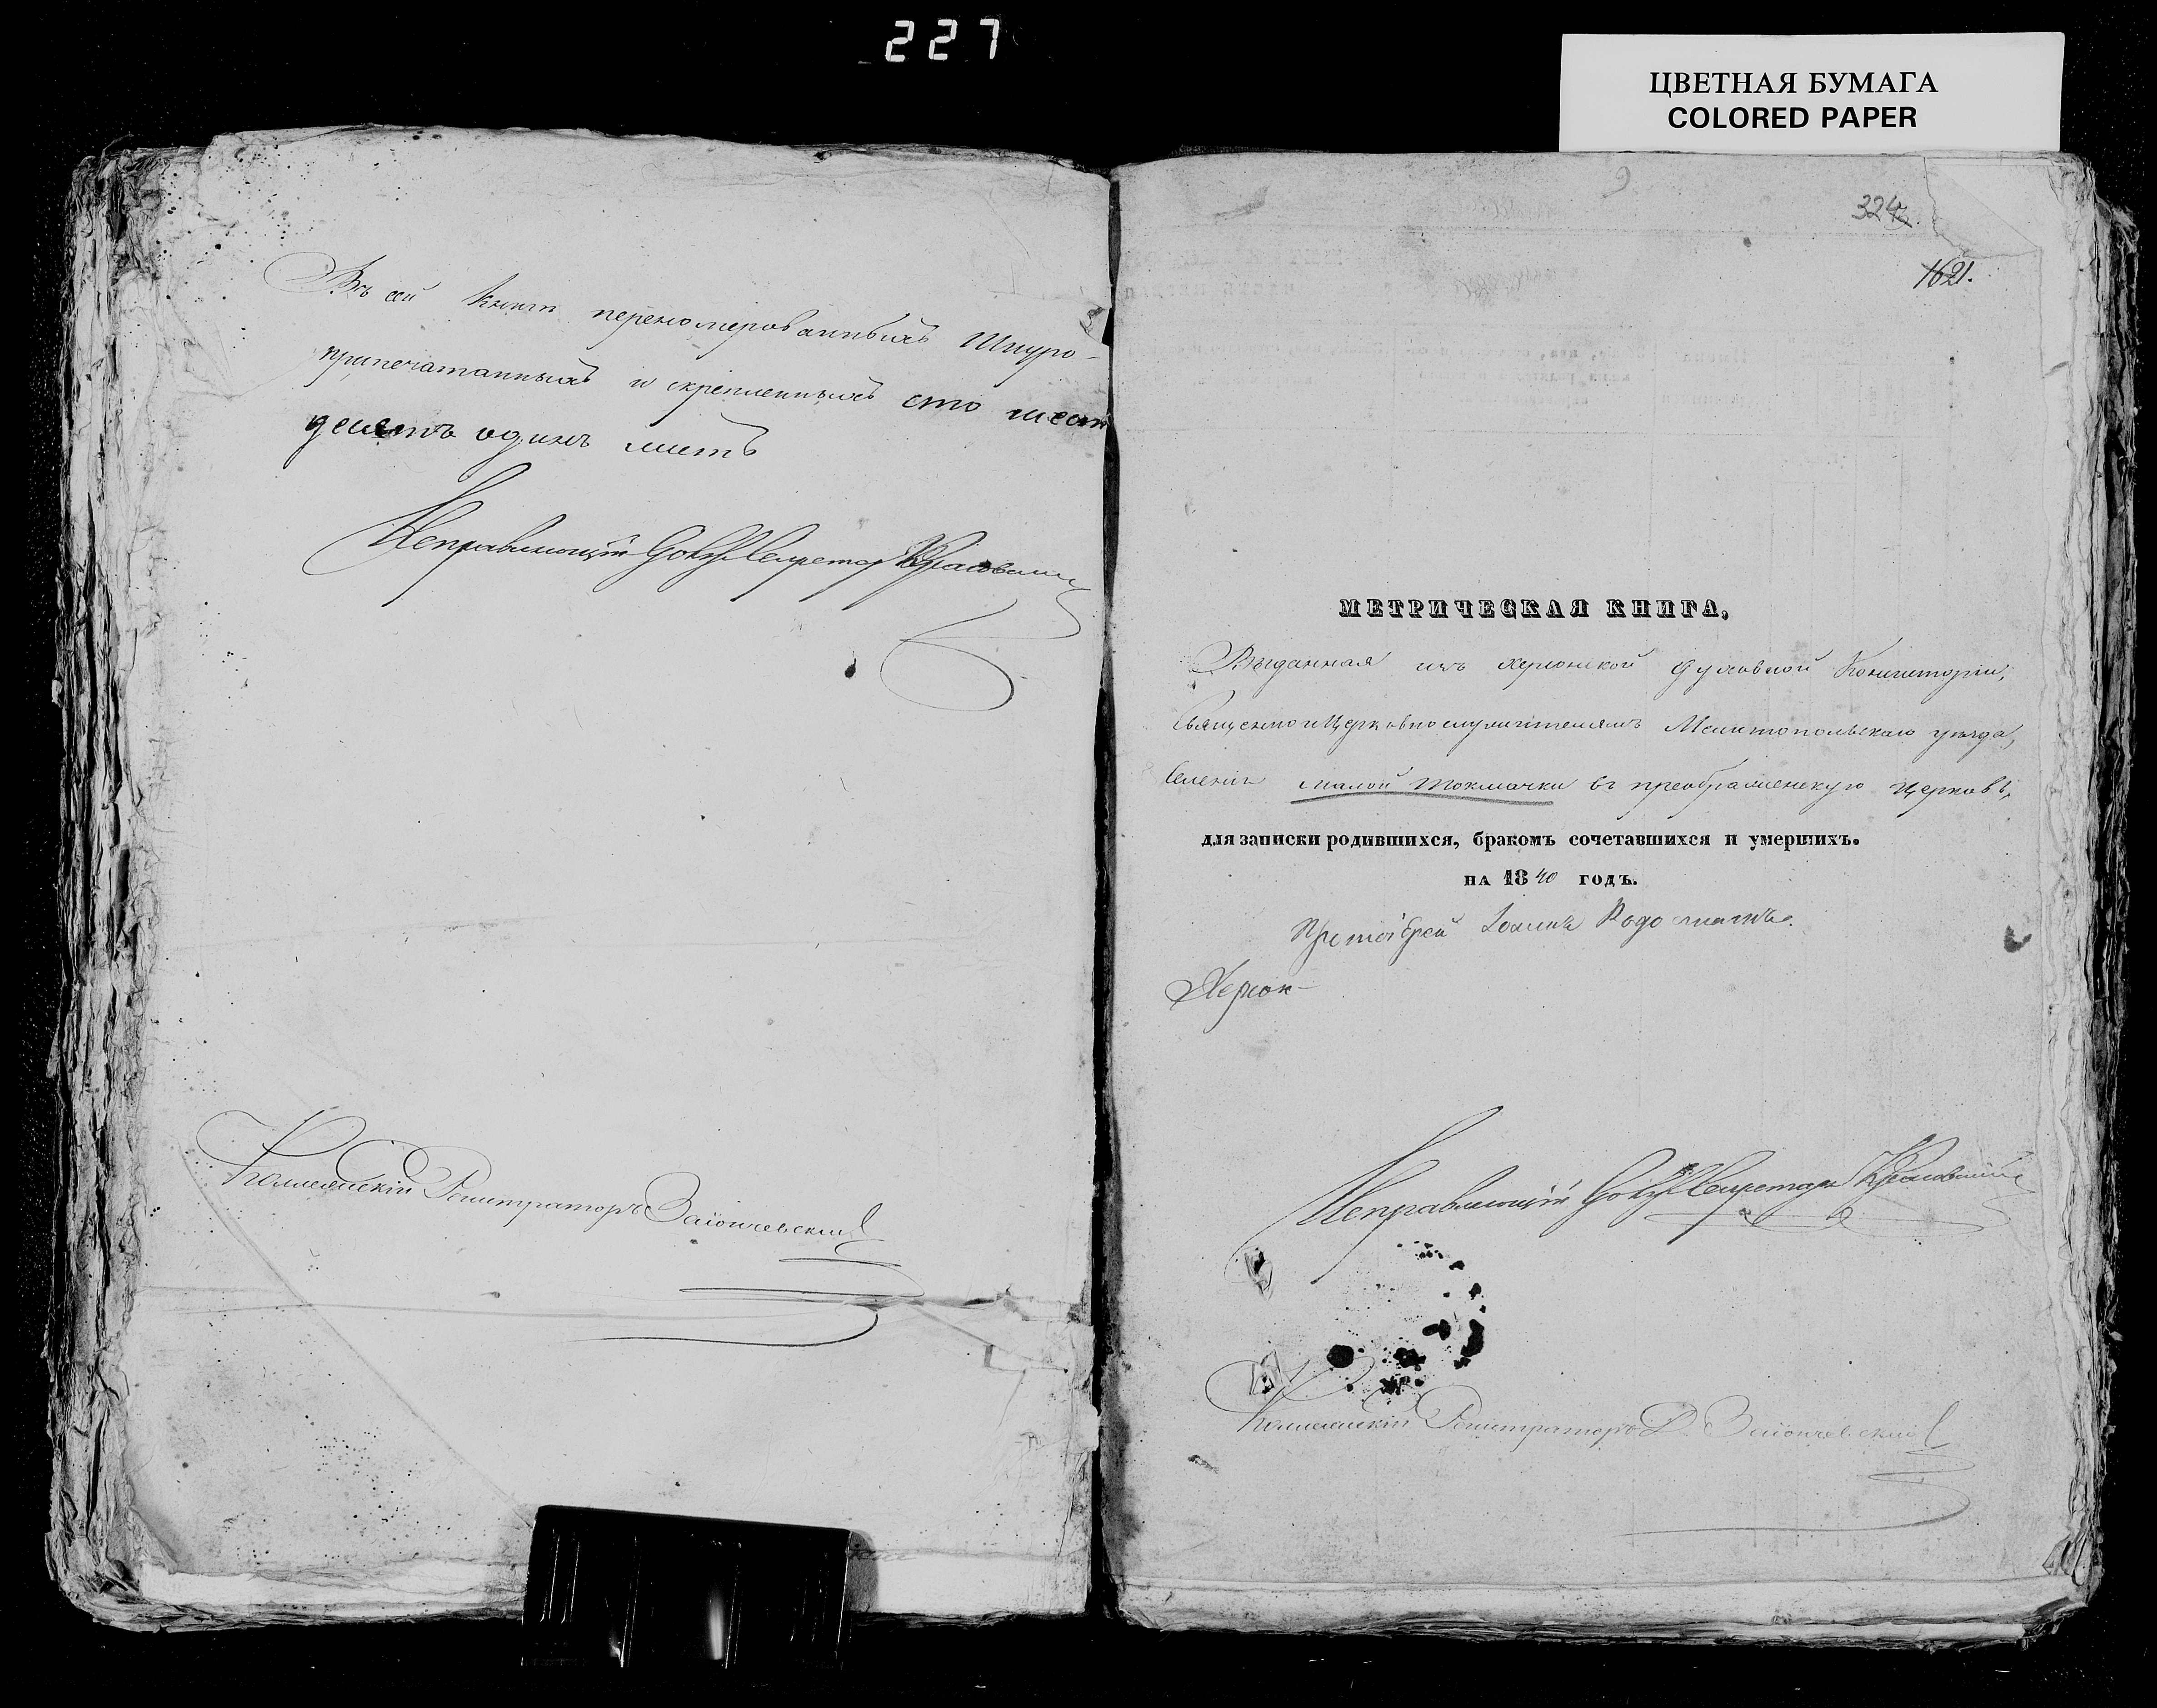 227
ЦВЕТНАЯ БУМАГА
COLORED PAPER
Въ сей книги переномерованныхъ шнуро-
припечатанныхъ и скрепленныхъ сто шесть
десятъ одинъ листъ
Исправляющій Секретаря
Коллежскій Регистраторъ Заіончевскій
9
324
1621.
МЕТРИЧЕСКАЯ КНИГА,
Выданная изъ Херсонской Духовной Консисторіи,
Священно и Церковнослужителямъ Мелитопольскаго уѣзда,
селенія малой токмачки въ преображенскую Церковь,
для записки родившихся, бракомъ сочетавшихся и умершихъ.
на 1840 годъ.
Протоіерей Іоаннъ
Херсон-
Исправляющій Секретаря
Коллежскій Регистраторъ Д. Заіончевскій